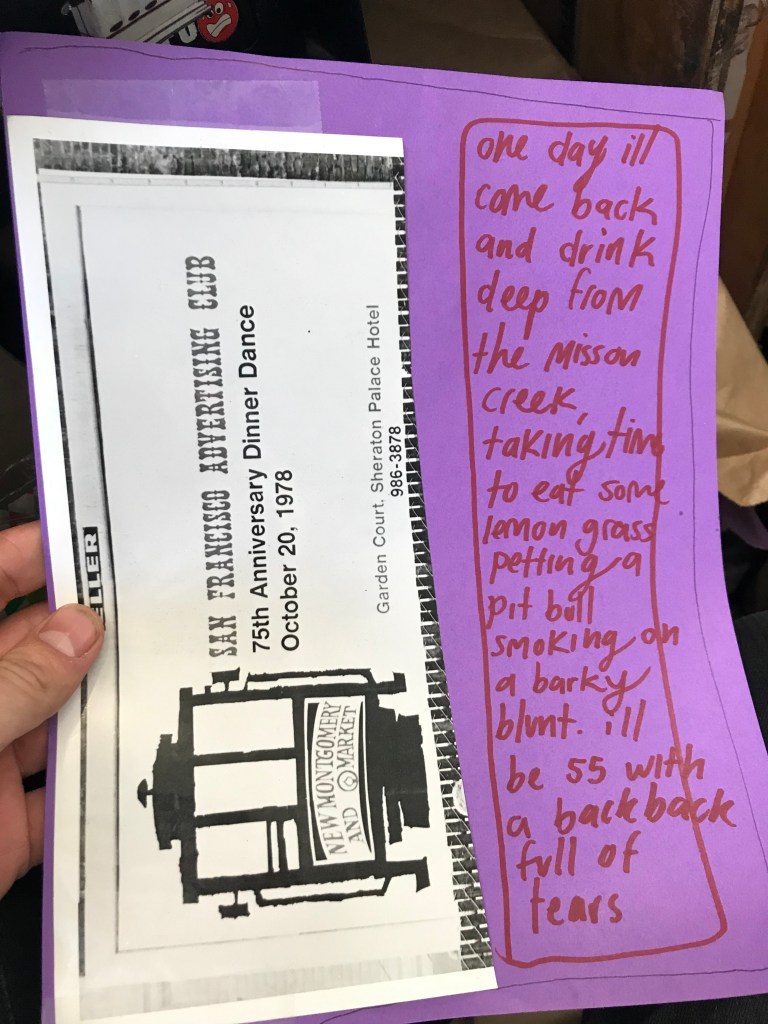 SAN FRANCISCO ADVERTISING CLUB
75th Anniversary Dinner Dance
October 20, 1978
Garden Court, Sheraton Palace Hotel
986-3878
NEW MONTGOMERY
AND MARKET
ELLER
one day ill
come back
and drink
deep from
the misson
creek,
taking time
to eat some
lemon grass
petting a
pit bull
smoking on
a barky
blunt. ill
be 55 with
a backback
full of
tears